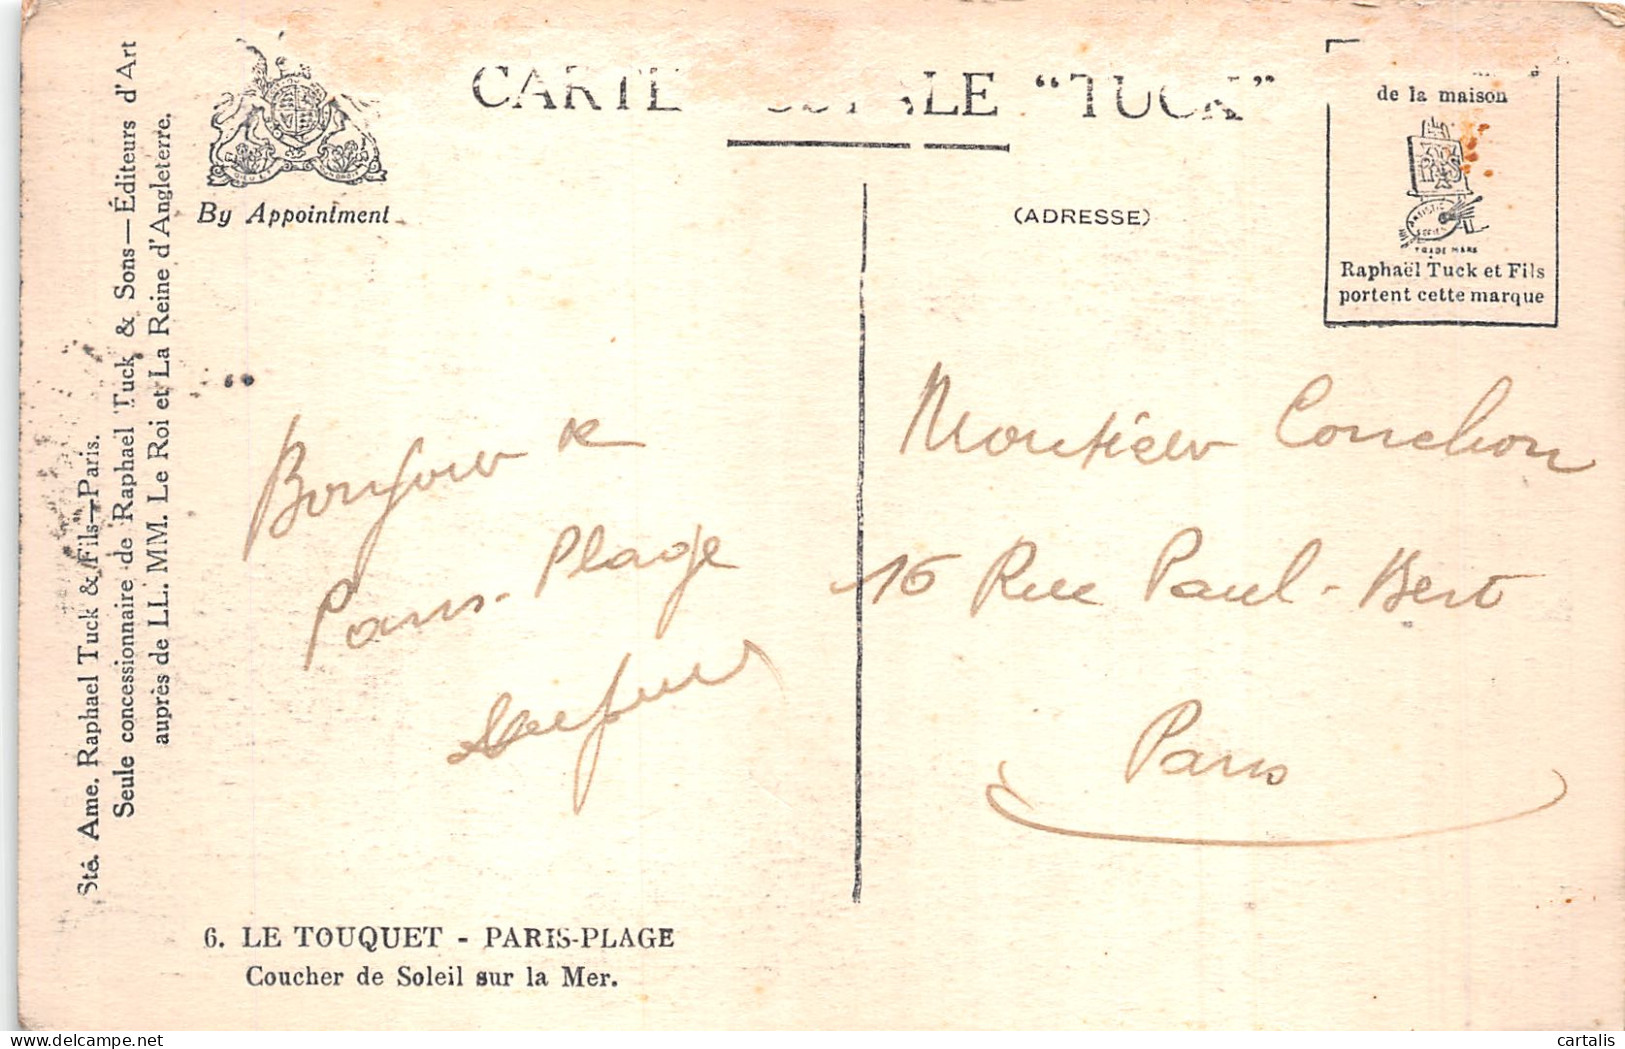 Sté. Ame. Raphael Tuck & Fils—Paris.
Seule concessionnaire de Raphael Tuck & Sons—Éditeurs d'Art
auprès de LL. MM. Le Roi et La Reine d'Angleterre.
By Appointment
CARTE POSTALE "TUCK"
(ADRESSE)
de la maison
TRADE MARK
Raphaël Tuck et Fils
portent cette marque
Bonjour de
Paris-Plage
Monsieur Conchon
16 Rue Paul-Bert
Paris
6. LE TOUQUET - PARIS-PLAGE
Coucher de Soleil sur la Mer.
cartalis
www.delcampe.net